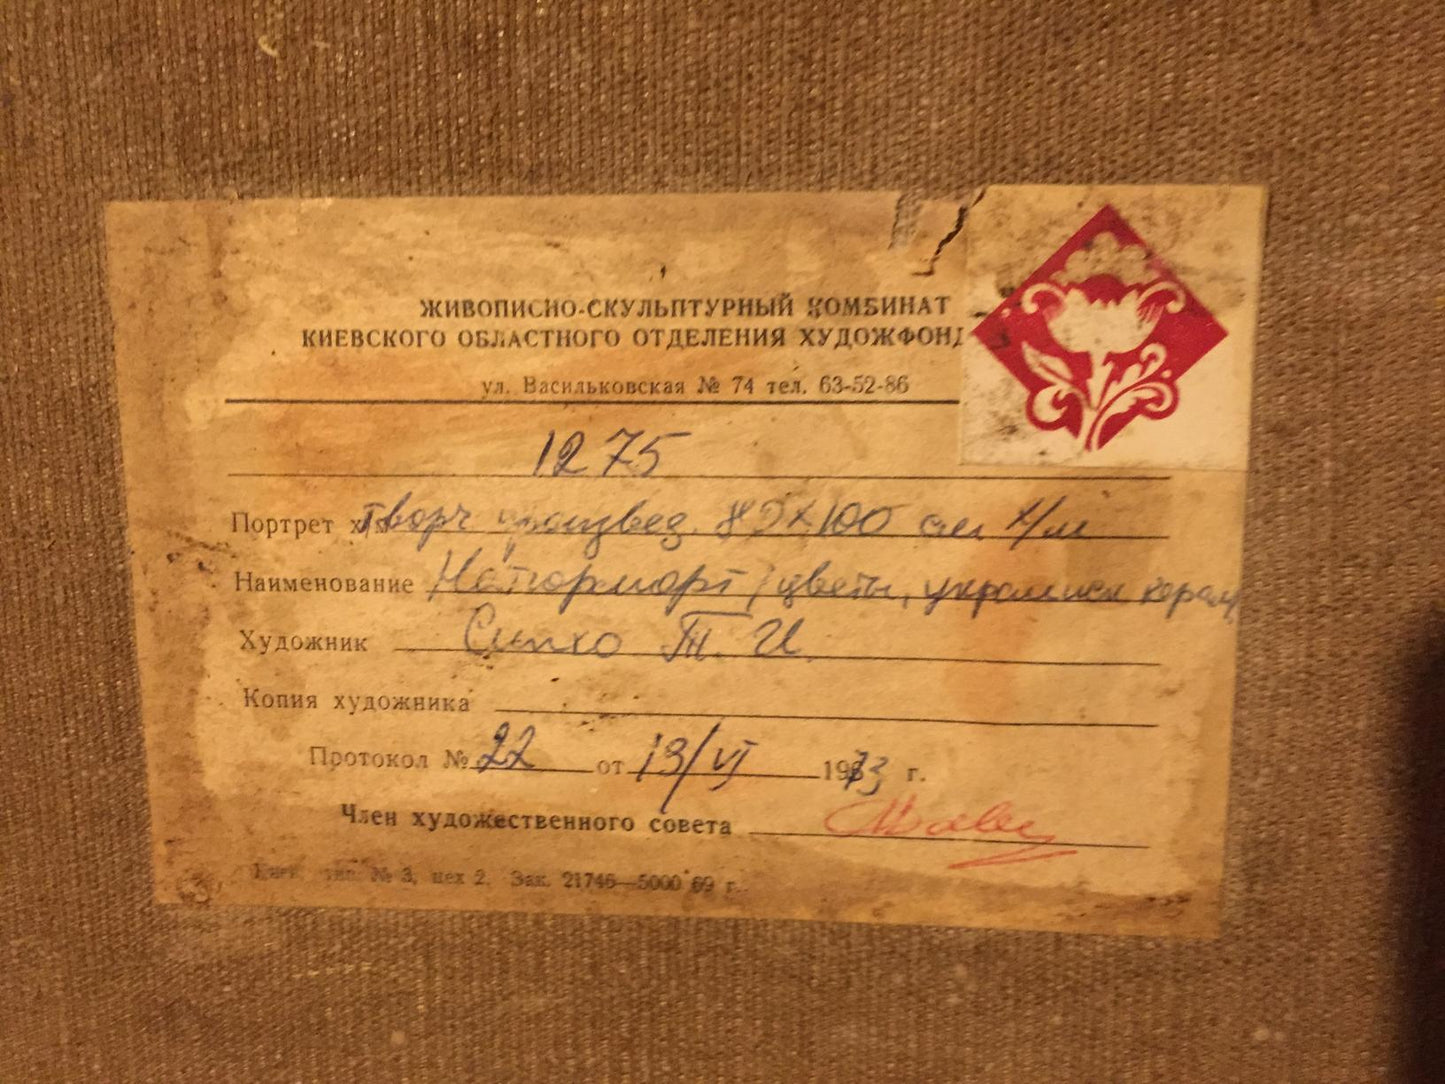 ЖИВОПИСНО-СКУЛЬПТУРНЫЙ КОМБИНАТ
КИЕВСКОГО ОБЛАСТНОГО ОТДЕЛЕНИЯ ХУДОЖФОНД
ул. Васильковская № 74 тел. 63-52-86
1275
Портрет х/м творч произвед. 80х100 см х/м
Наименование Натюрморт (цветы, украинск керам
Художник Т. И.
Копия художника
Протокол № 22 от 19/VI 1973 г.
Член художественного совета
тип. № 3, цех 2. Зак. 21746—5000 69 г.